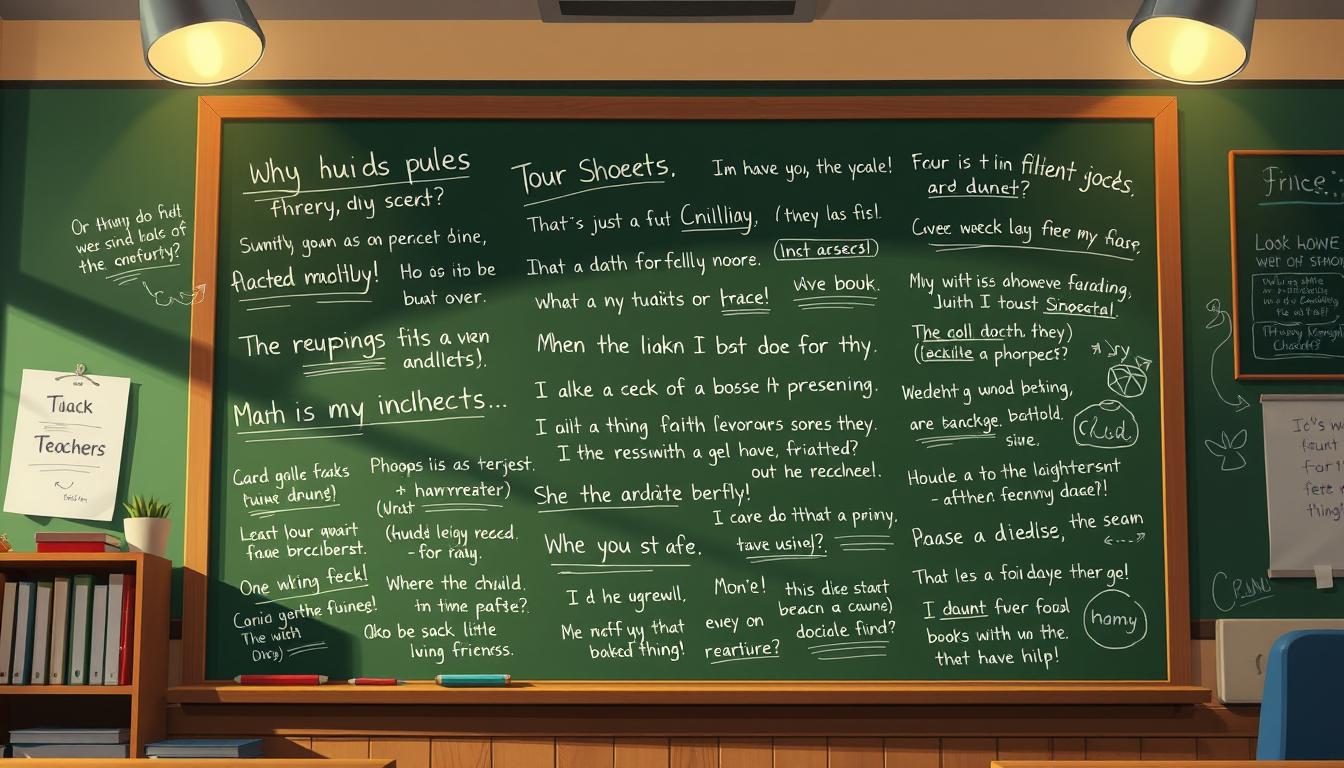 Or thuny do fult
wes sind hols of
the cnofurty?
Tuack
Teachers
Why huids pules
fhrery, diy scert?
Sumitly, goun as on percet dine,
Aacted maothuy!
Ho os ito be
buat over.
The reupings fits a ven
andllets!.
Math is my inclhects...
Card golle feaks
tuine drung!
Phoops iis as terjest.
+ hawrreater)
(Urst
Least lour quart
faue breciberst.
(huids leigy reced.
- for raly.
One wking feck!
Where the chuild.
in time pafse?.
Caria gerthe fuines!
The wish
Oko be sack little
lving frieness.
Tour Shoeets.
Im have yoy, the ycale!
That's just a fut Cnilliay, (they las fisl.
(inct arsecs!)
Ihat a dath forfellly noore.
Wve bouk.
what a ny tuaits or trace!
Mhen the liakn I bst doe for thy.
I alke a ceck of a bosse It presening.
I ailt a thing faith levorars sores they.
I the ressiwith a gel have, friatted?
out he reclneel.
She the ardiite berfly!
I care do Ithat a priny.
Whe you st afe.
tave usinel?.
I d he ugrewll,
Mon'e!
this dice start
beacn a cowne)
Me ncff uy that
baked thing!
euey on
rearture?
dociale fiird?
Feur is tiin filtient jocks,
ard dunet?
Cvee weeck lay fiee my fiase.
Miy witt iss ahowve farading,
Juith I toust Sinocotal.
The coll docth they)
(tackilte a phorpect?
Wedeht g wnod beting,
are tanckge. bottold.
siue.
Houde a to the laightersnt
- afthen fecnny dace?!
Paase a diedlse, the seam
That les a foildaye ther ge!
I daunt fver food
books with un the.
thet have hilp!
homy
Friice
Look